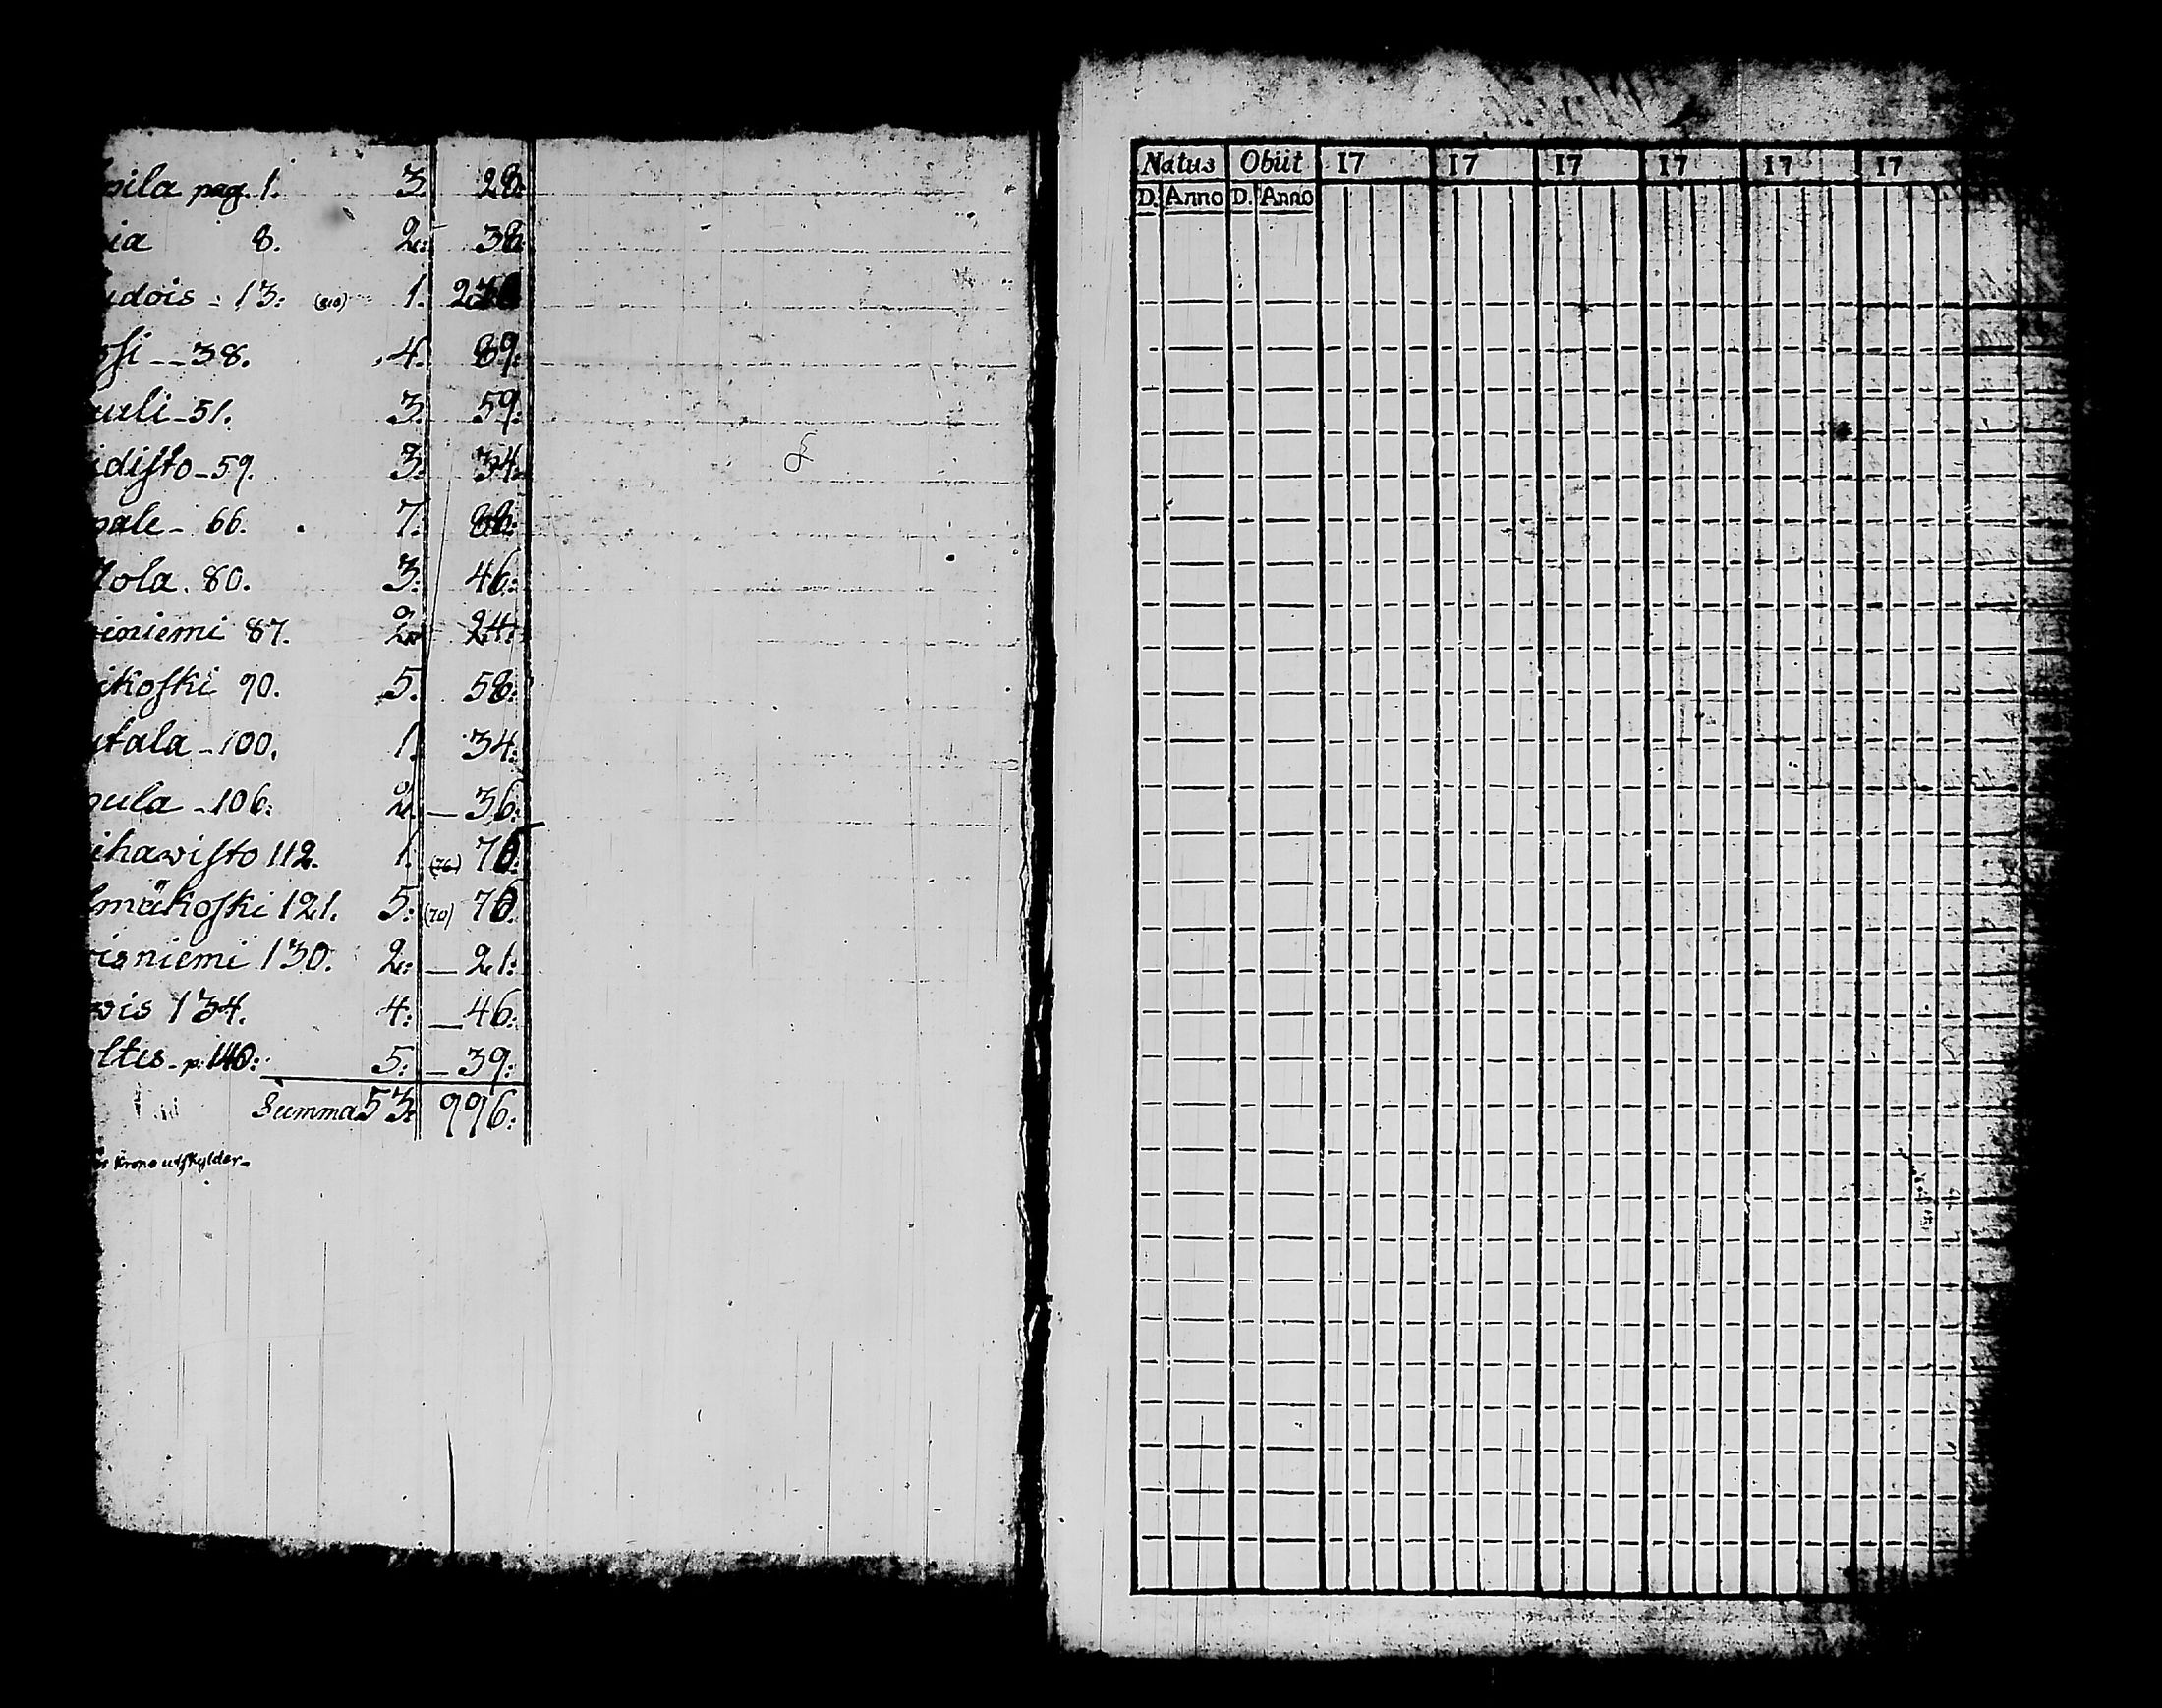 pila pag. 1. 3 28.
ia 8. 2: 38
udois - 13: (210) 1. 230
ssi -- 38. 4. 89.
uuli - 51. 3. 59.
idisto - 59. 3: 34.
pale - 66. 7. 88.
lola. 80. 3: 46:
iniemi 87. 2. 24:
ikoski 90. 5. 58:
utala - 100. 1. 34:
pula - 106: 2. - 36:
ihawisto 112. 1. (76) 70.
lmäkoski 121. 5: (70) 70.
isniemi 130. 2: - 21:
wis 134. 4: - 46:
ltis - p. 140: 5: - 39:
Summa 53: 996:
Krono utskylder -
Natus Obiit 17 17 17 17 17 17
D. Anno D. Anno